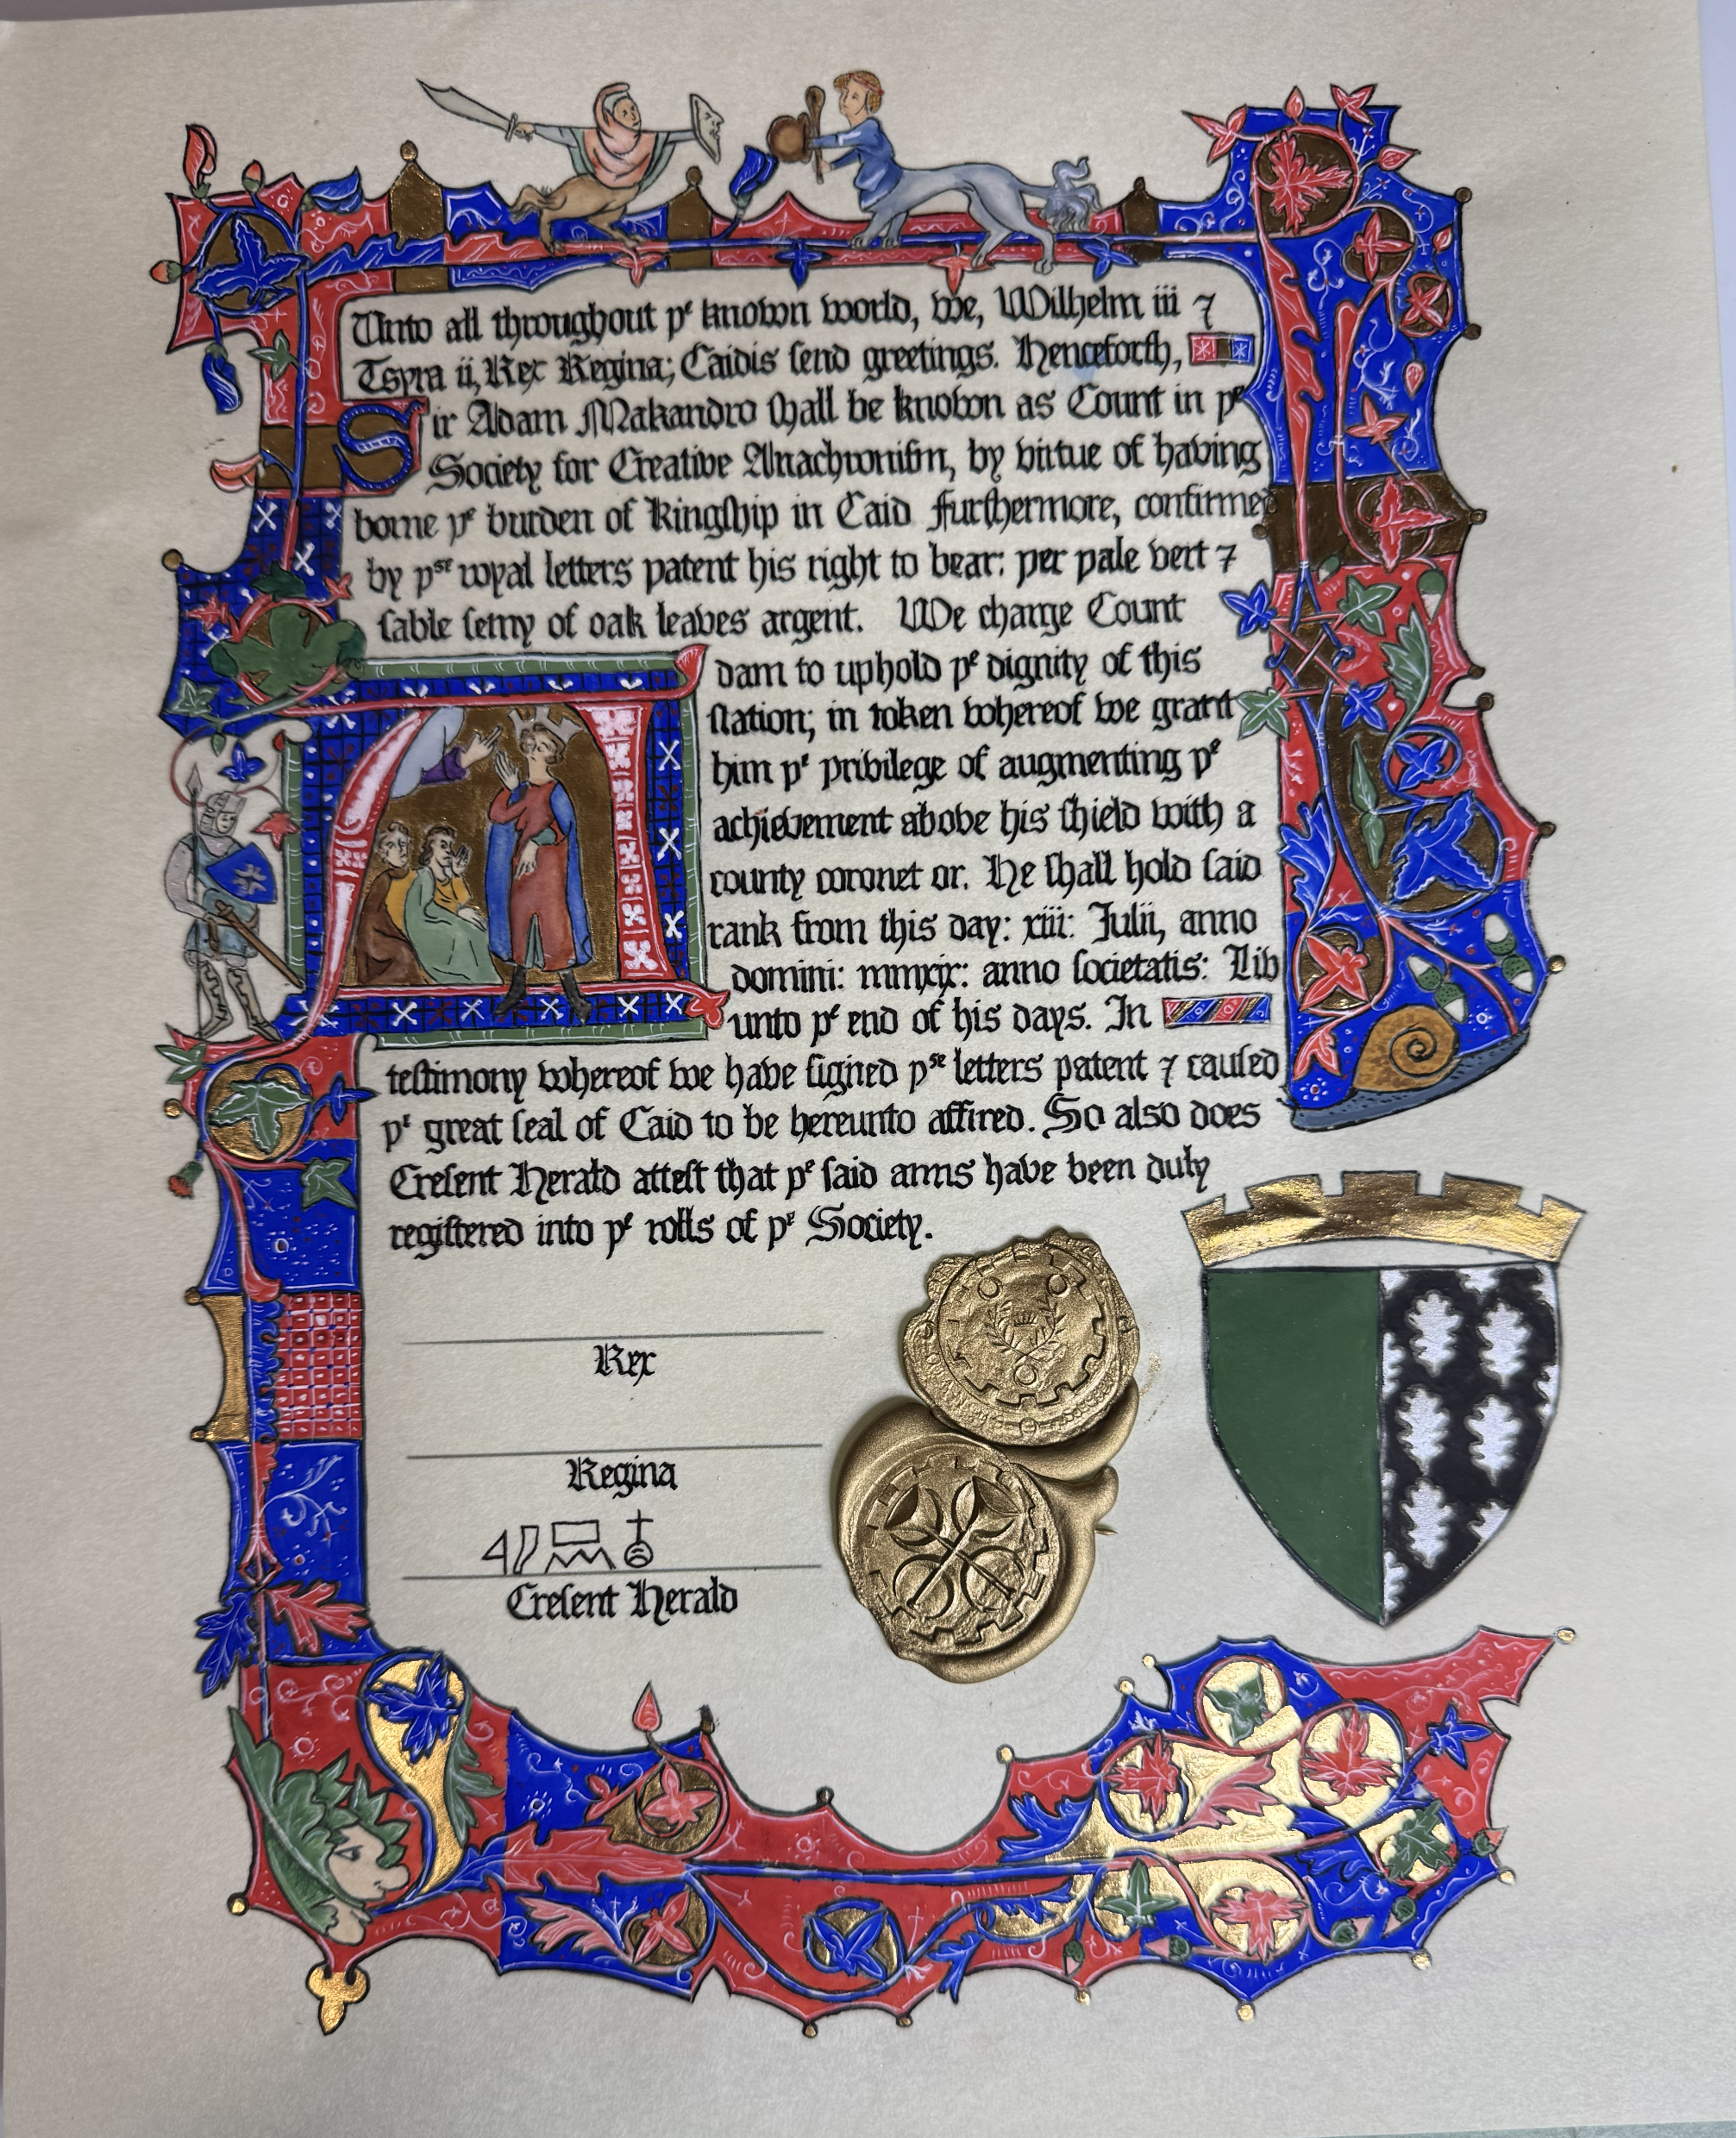 Unto all throughout yͤ known world, we, Wilhelm iii ⁊
Tspra ii, Rex Regina; Caidis send greetings. Henceforth,
Sir Adam Makandro shall be known as Count in yͤ
Society for Creative Anachronism, by virtue of having
borne yͤ burden of Kingship in Caid Furthermore, confirmed
by yˢᵉ royal letters patent his right to bear: per pale vert ⁊
sable semy of oak leaves argent. We charge Count
Adam to uphold yͤ dignity of this
station; in token whereof we grant
him yͤ privilege of augmenting yͤ
achievement above his shield with a
county coronet or. He shall hold said
rank from this day: xiii: Julii, anno
domini: mmxix: anno societatis: Liv
unto yͤ end of his days. In
testimony whereof we have signed yˢᵉ letters patent ⁊ caused
yͤ great seal of Caid to be hereunto affixed. So also does
Cresent Herald attest that yͤ said arms have been duly
registered into yͤ rolls of yͤ Society.
Rex
Regina
Cresent Herald